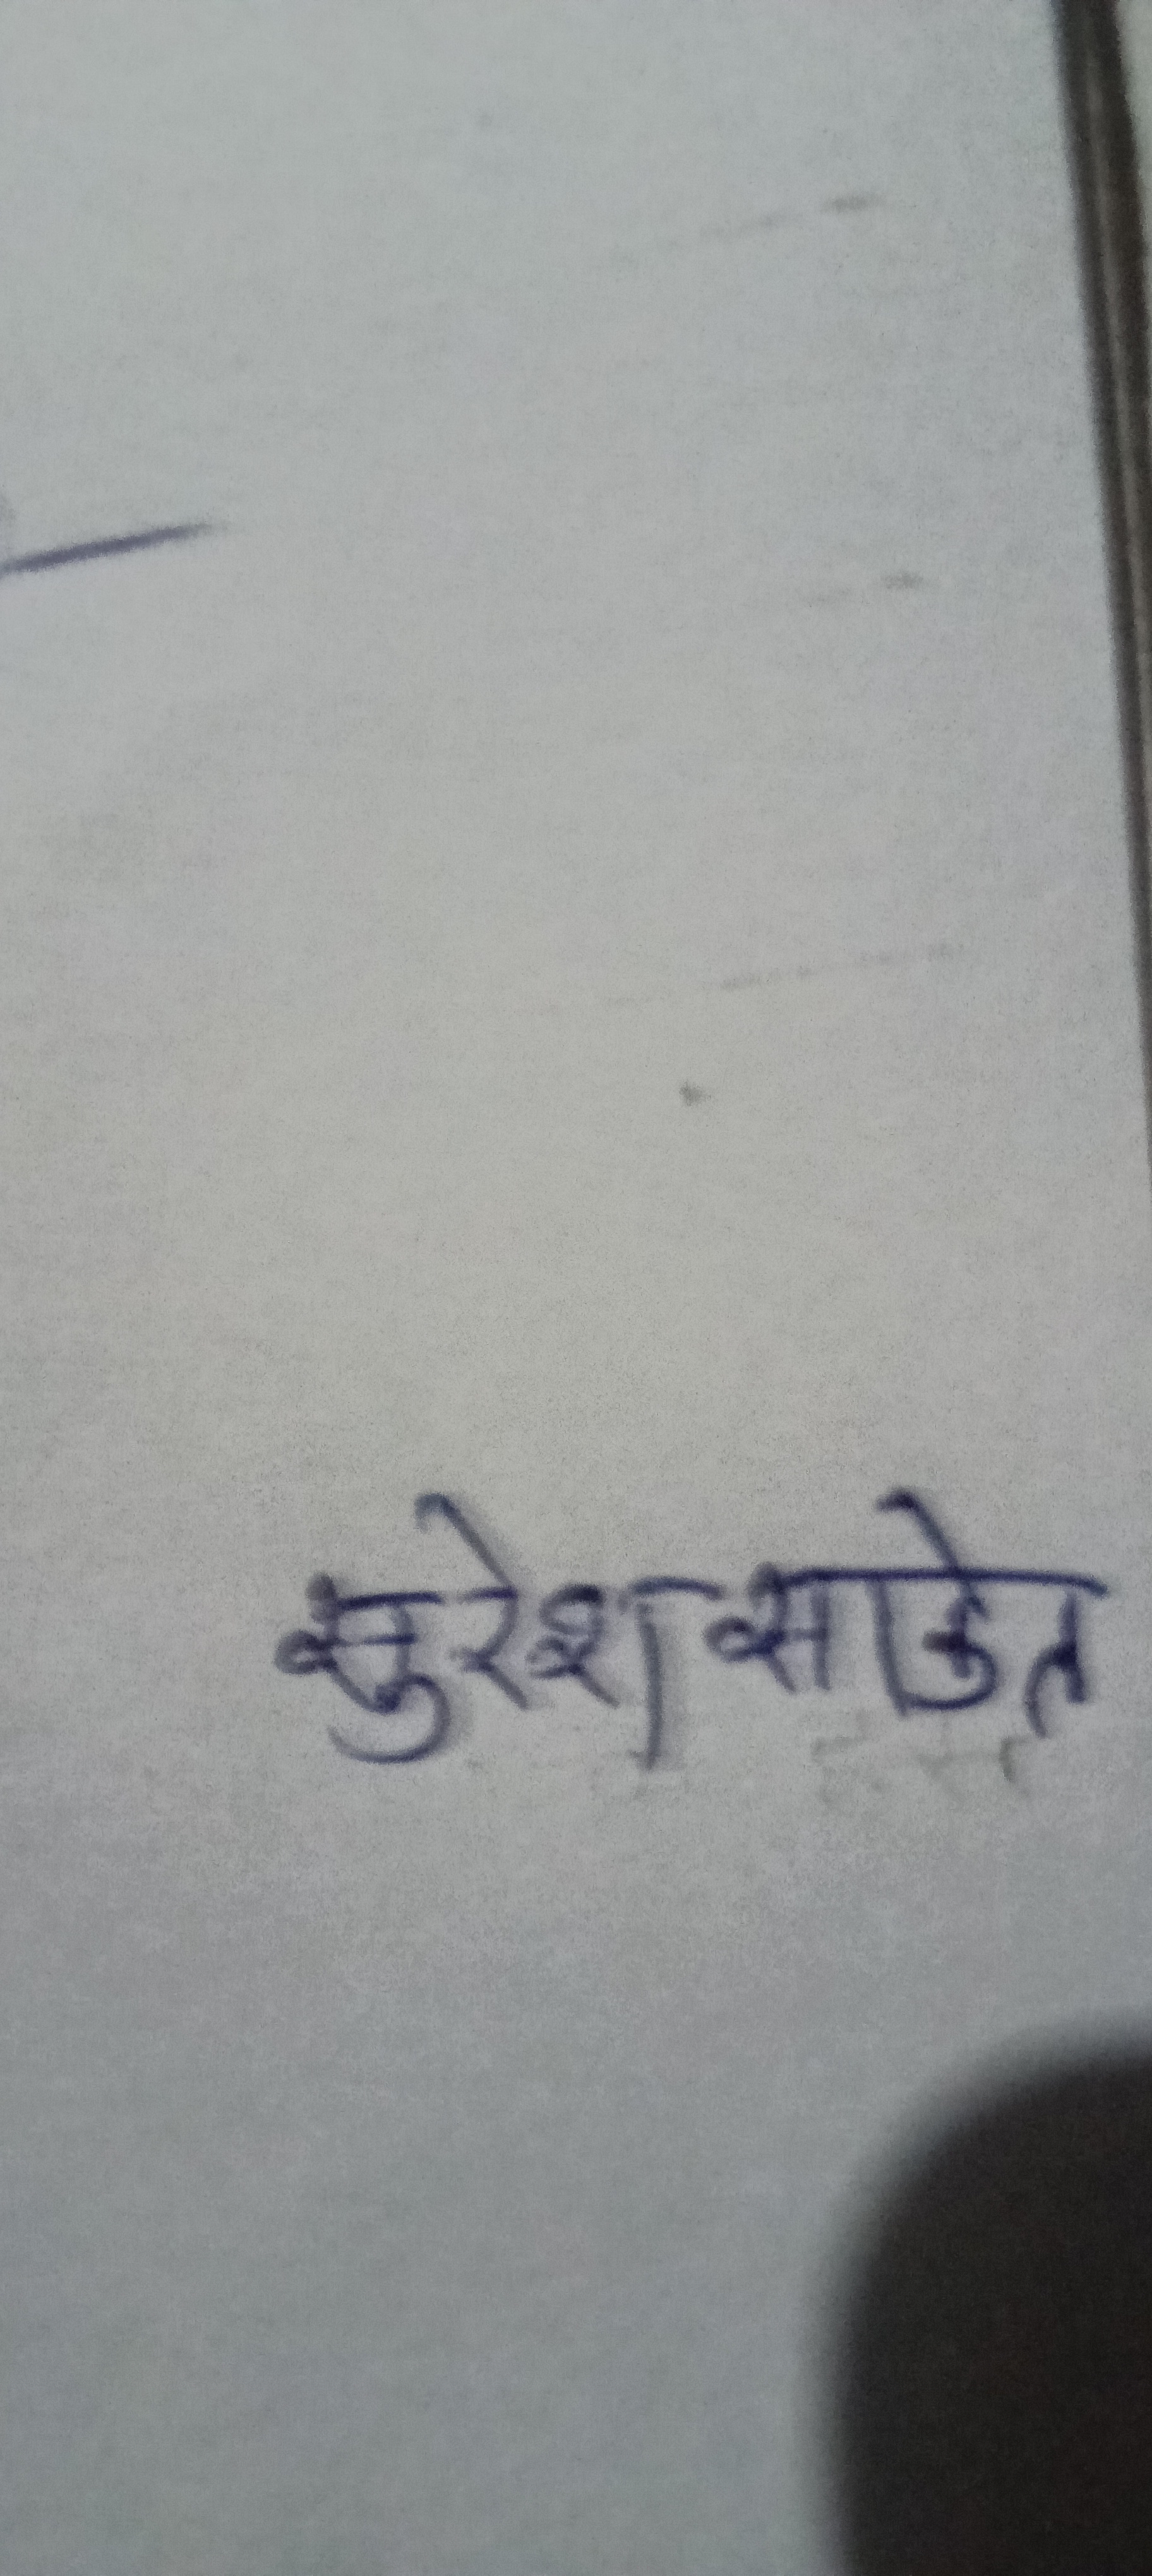 सुरेश साकेत